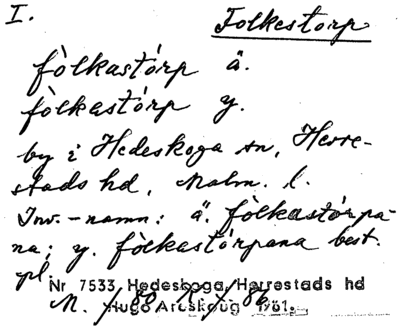 I. Folkestorp
fòlkastórp ä.
fòlkastórp y.
by i Hedeskoga sn, Herre-
stads hd, Malm. l.
Inv.-namn: ä. fòlkastórpa-
na; y. fòlkastórpana best.
pl
Nr 7533 Hedeskoga, Herrestads hd
Hugo Areskoug 1961.